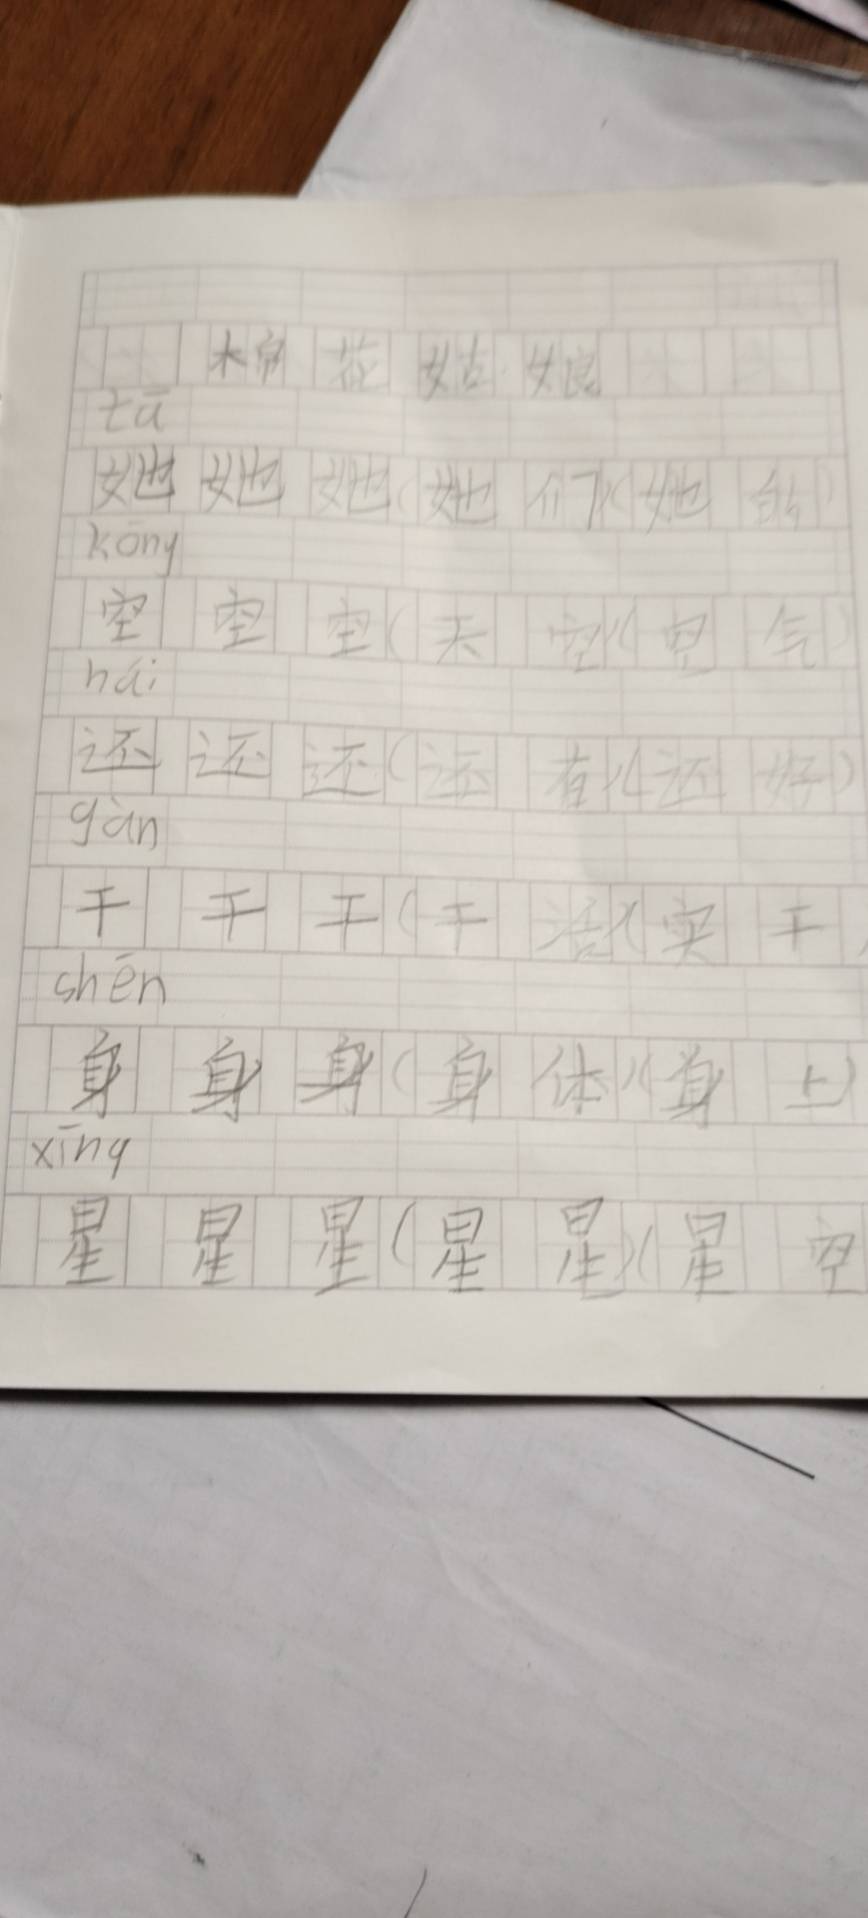 棉花姑娘
tā
她她她(她们)(她的)
kōng
空空空(天空)(空气)
hái
还还还(还有)(还好)
gàn
干干干(干活)(实干
shēn
身身身(身体)(身上)
xīng
星星星(星星)(星空